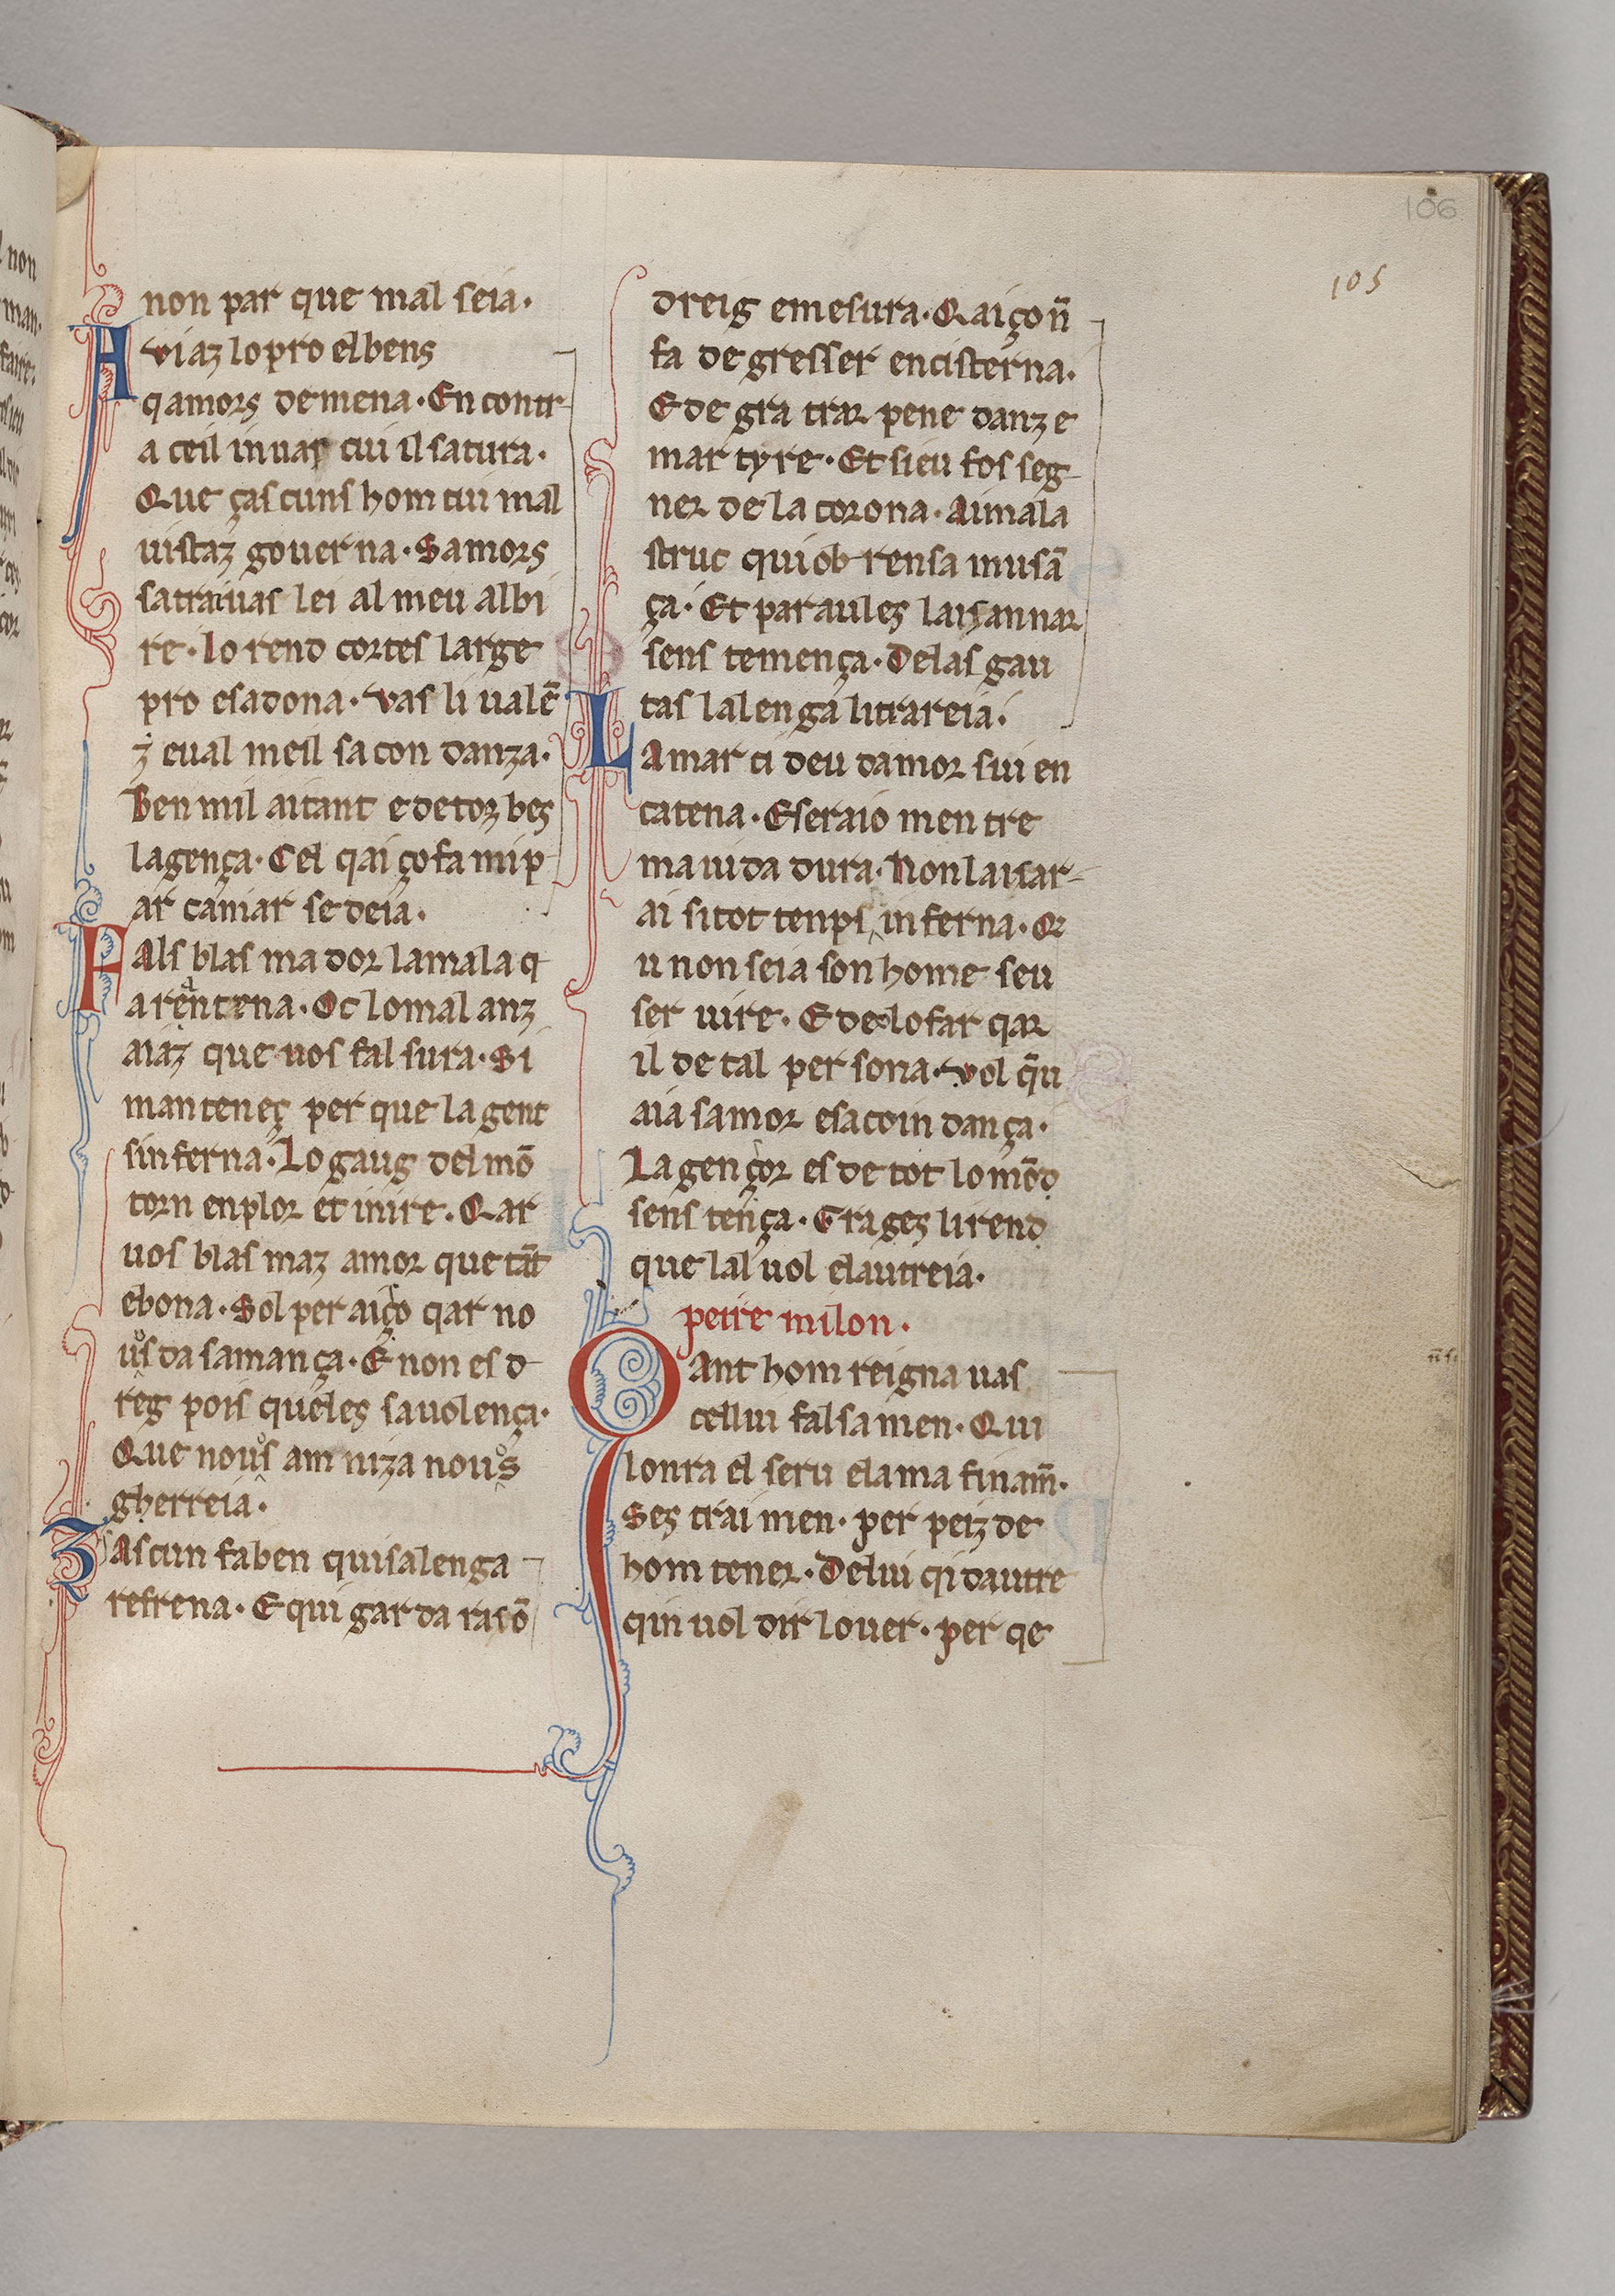 106
105
non par que mal seia·
Auiaz lo pro el bens
q amors demena· En contr
a ceil in uas cui il satura·
Que ças cuns hom cui mal
uistaz gouerna· Samors
satrai uas lei al meu albi
re· lo rend cortes large
pro esadona· vas li ualē
z eual meil sa con danza·
Ben mil aitant e de toz bes
lagença· Cel qai ço fa mi p
ar camiar se deia·
Fals blas ma dor la mala q
arentena· Oc lo mal anz
aiaz que uos fal sura· Si
manteneç per que la gent
sinferna· Lo gaug del mō
torn en plor et in ire· Qar
uos blas maz amor que tāt
ebona· Sol per aiço qar no
uos da saman ça· E non es d
reg pois queles sauolença·
Que nouos am niza nouos
gherreia·
Zascun fa ben qui sa lenga
refrena· E qui gar da rasō
dreig emesura· Qaiço nō
fa de gresser en cisterna·
E de gra trar pene danz e
mar tyre· Et sieu fos seg
ner de la corona· Ai mala
struc qui ob rensa musā
ça· Et paraules laisannar
sens temença· De las gau
tas la lenga li trareia·
Lamar ci deu damor sui en
catena· E seraio men tre
ma uida dura· Non laisar
ai si tot tenps in ferna· Q
u non seia son home seu
ser uire· E de lo far qar
il de tal per sona· vol qū
aia samor esa coin dança·
La gençor es de tot lo mōd
sens tença· Grages li rend
que lal uol elautreia·
peire milon·
Qant hom reigna uas
cellui falsa men· Qui
lonra el seru elama finam̄·
Ses trai men· per peiz de
hom tener· De lui qi dautre
qin uol dir louer· per qe